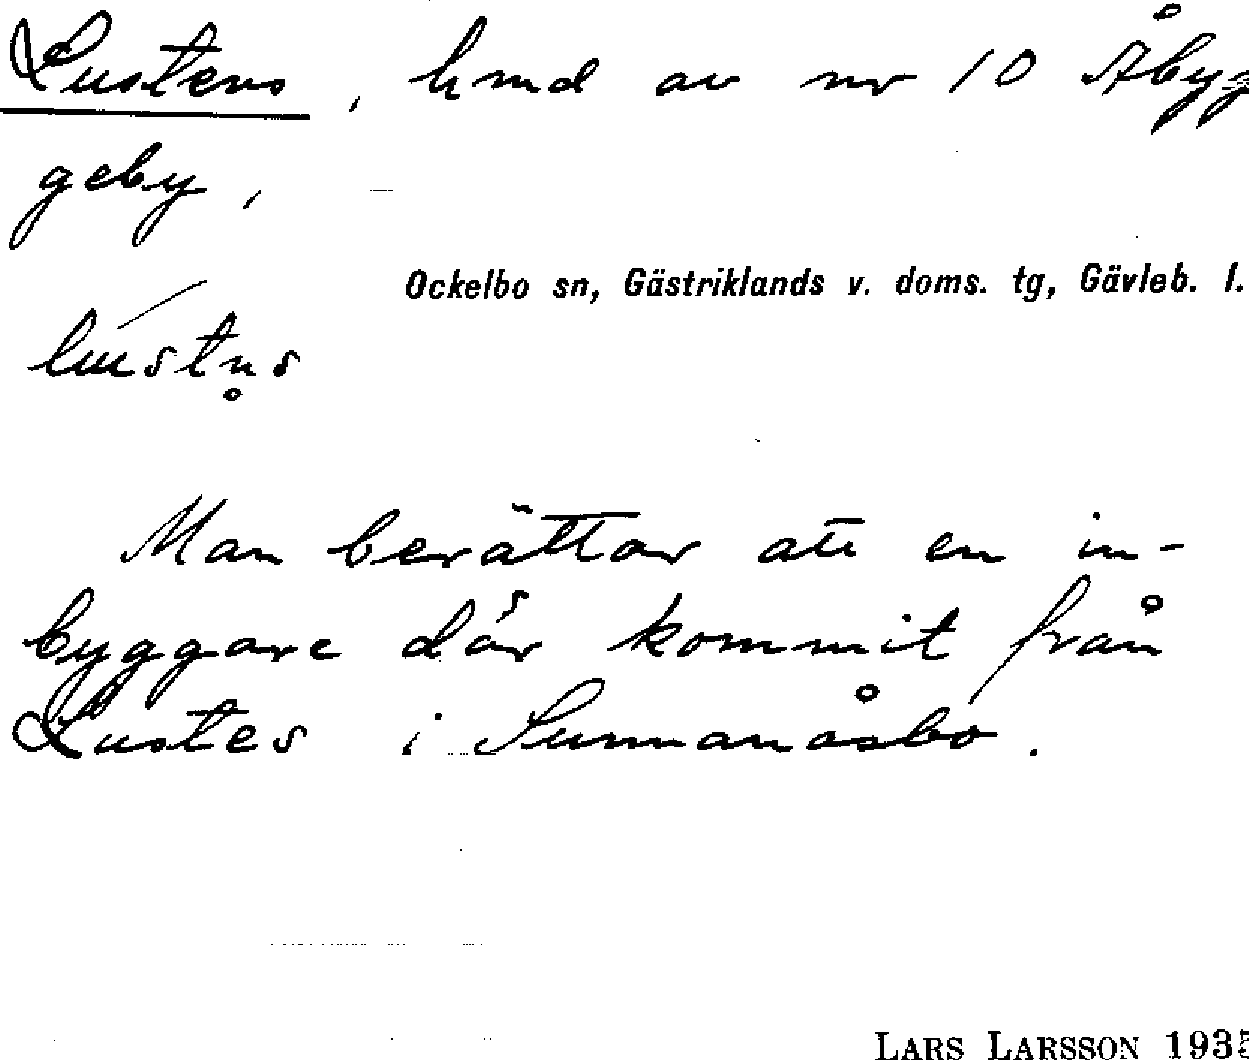 Lustens, hmd av nr 10 Åbyg
geby,
Ockelbo sn, Gästriklands v. doms. tg, Gävleb. l.
lústn̥s
Man berättar att en in-
byggare där kommit från
Lustes i Sunnanåsbo.
LARS LARSSON 1935